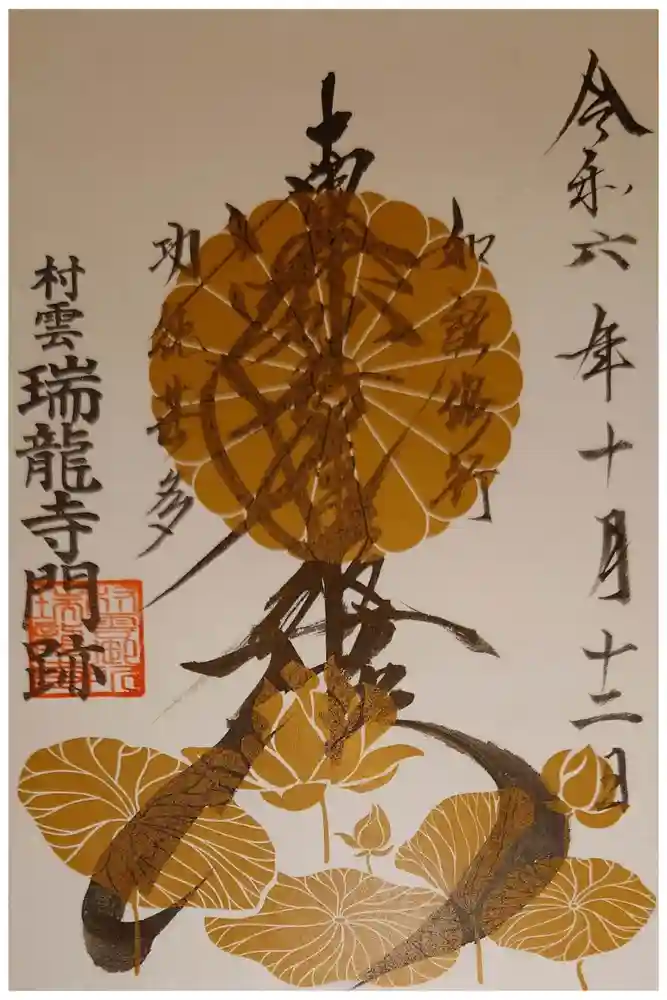 令和六年十月十二日
如説修行
南無妙法蓮華經
功徳甚多
村雲
瑞龍寺門跡